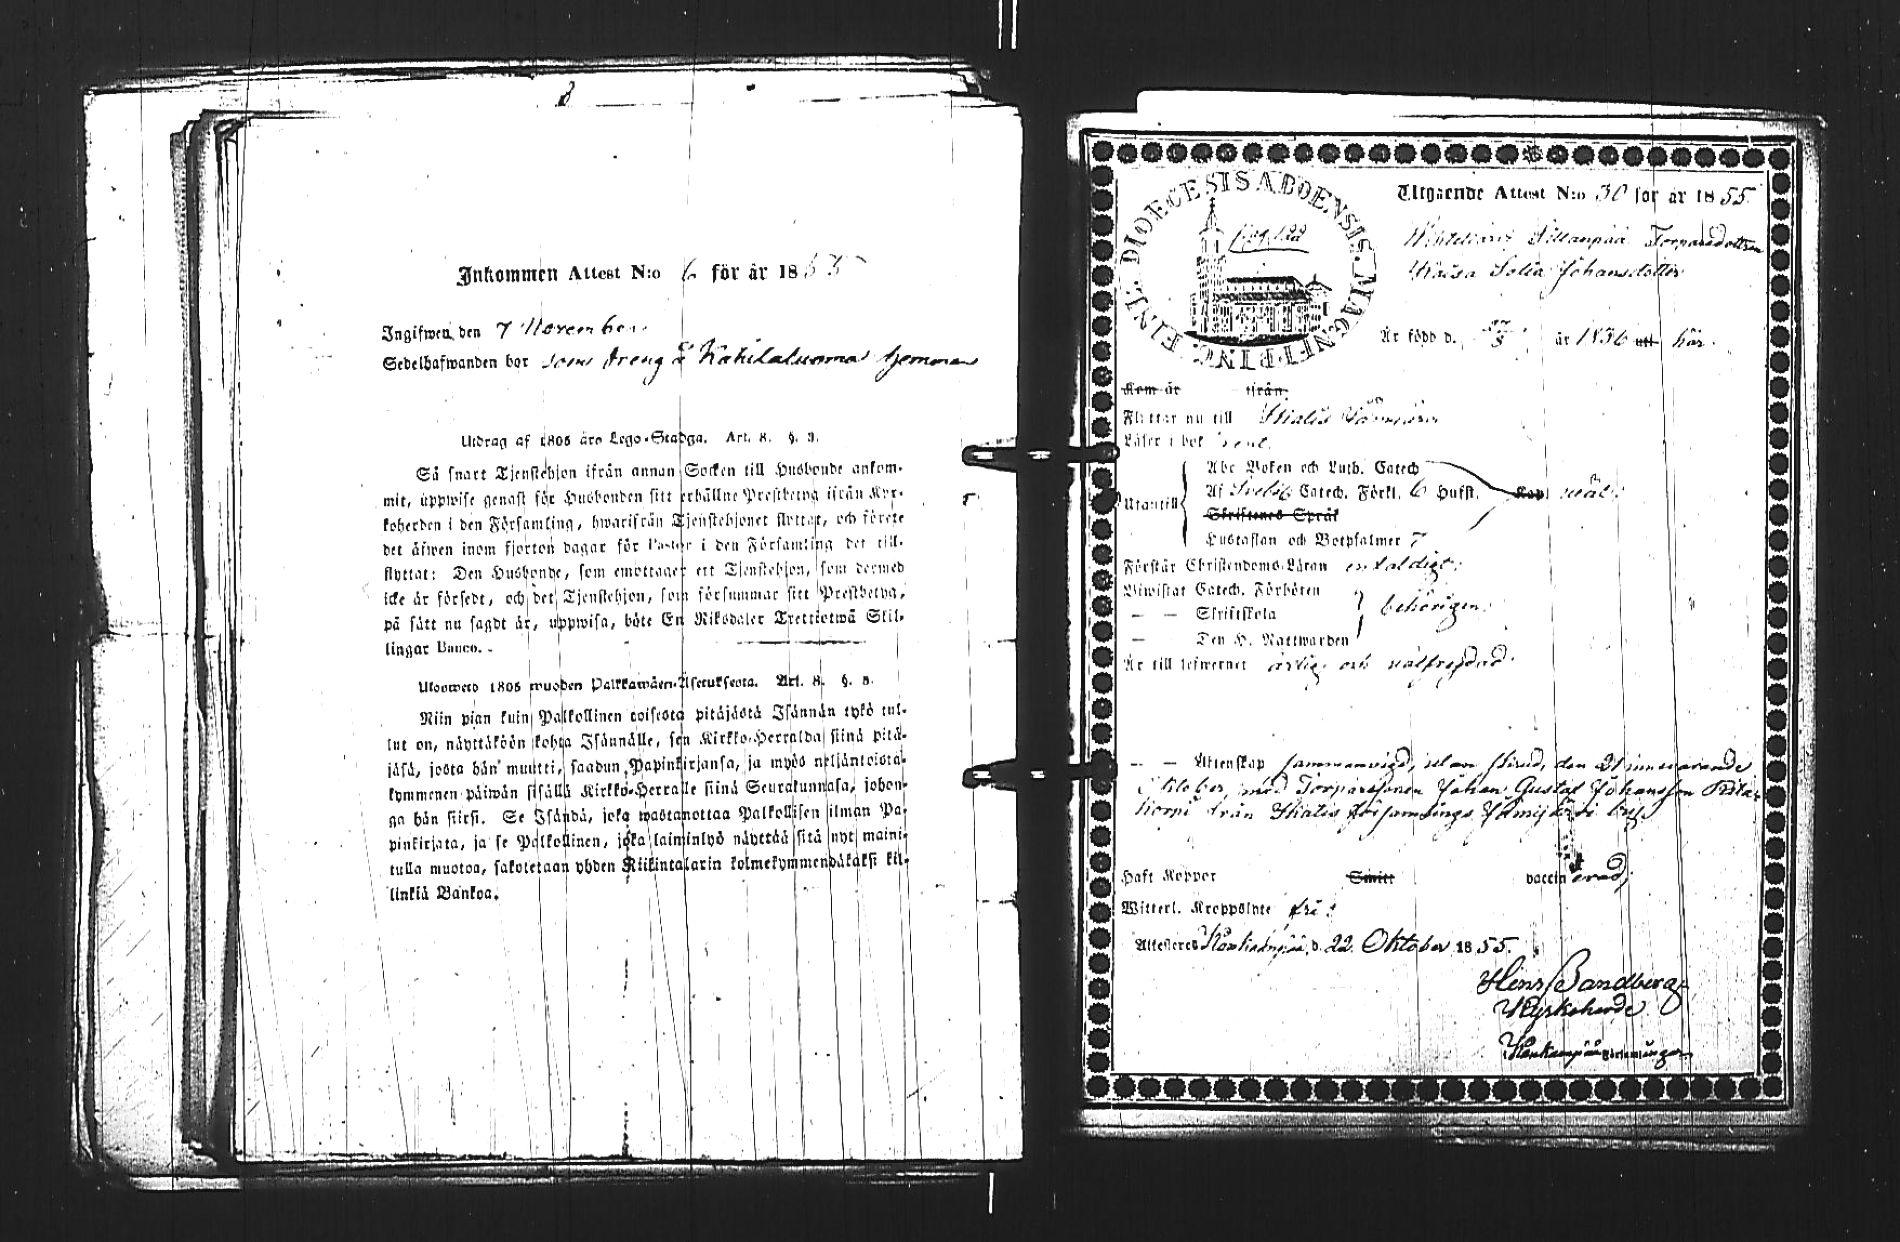 Inkommen Attest N:o 6 för år 1855
Ingifwen den 7 November
Sedelhafwanden bor som dreng å hemman
Utdrag af 1805 års Lego-Stadga. Art. 8. §. 3.
Så snart Tjenstehjon ifrån annan Socken till Husbonde ankom-
mit, uppwise genast för Husbonden sitt erhållne Prestbetyg ifrån Kyr-
koherden i den Församling, hwarifrån Tjenstehjonet flyttat, och förete
det äfwen inom fjorton dagar för Pastor i den Församling det till-
flyttat: Den Husbonde, som emottager ett Tjenstehjon, som dermed
icke är försedt, och det Tjenstehjon, som försummar sitt Prestbetyg,
på sätt nu sagdt är, uppwisa, böte En Riksdaler Trettiotwå Skil-
lingar Banco.
Ulosweto 1805 wuoden Palkkawäen-Asetuksesta. Art. 8. §. 3.
Niin pian kuin Palkollinen toisesta pitäjästä Isännän tykö tul-
lut on, näyttäköön kohta Isännälle, sen Kirkko-Herralda siinä pitä-
jäsä, josta hän muutti, saadun Papinkirjansa, ja myös neljäntoista-
kymmenen päiwän sisällä Kirkko-Herralle siinä Seurakunnasa, johon-
ga hän siirsi. Se Isändä, joka wastanottaa Palkollisen ilman Pa-
pinkirjata, ja se Palkollinen, joka laiminlyö näyttää sitä nyt maini-
tulla muotoa, sakotetaan yhden Riikintalarin kolmekymmendäkaksi kil-
linkiä Bankoa.
EINE. DIOECESIS ABOENSIS. MAGNEFIRING
Utgående Attest N:o 30 för år 1855
Sillanpää Torparedottren
Kaisa Sofia Johansdotter
Är född d. 27/5 år 1836 utt här.
Kom år ifrån
Flyttar nu till Ikalis
Läser i bok rent.
Utantill
Abc Boken och Luth. Catech
Af Svebil. Catech. Förkl. 6 Hufst. Kap. nöål.
Skriftenes Språk
Hustaflan och Botpsalmer 7
Förstår Christendoms-Läran enfaldigt.
Biwistat Catech. Förhören
— — Skriftskola behörigen.
— Den H. Nattwarden
Är till lefwernet ärlig och välfrejdad.
— — Äktenskap sammanvigd, utan den 21 innevarande
Oktober, med Torparesonen Johan Gustaf Johansson
från Ikalis församlings by.
Haft Koppor Smitt vaccinerad;
Witterl. Kroppslyte fri;
Attesteras Honkajoki, d. 22 Oktober 1855.
Henr. Sandberg
Kyrkoherde